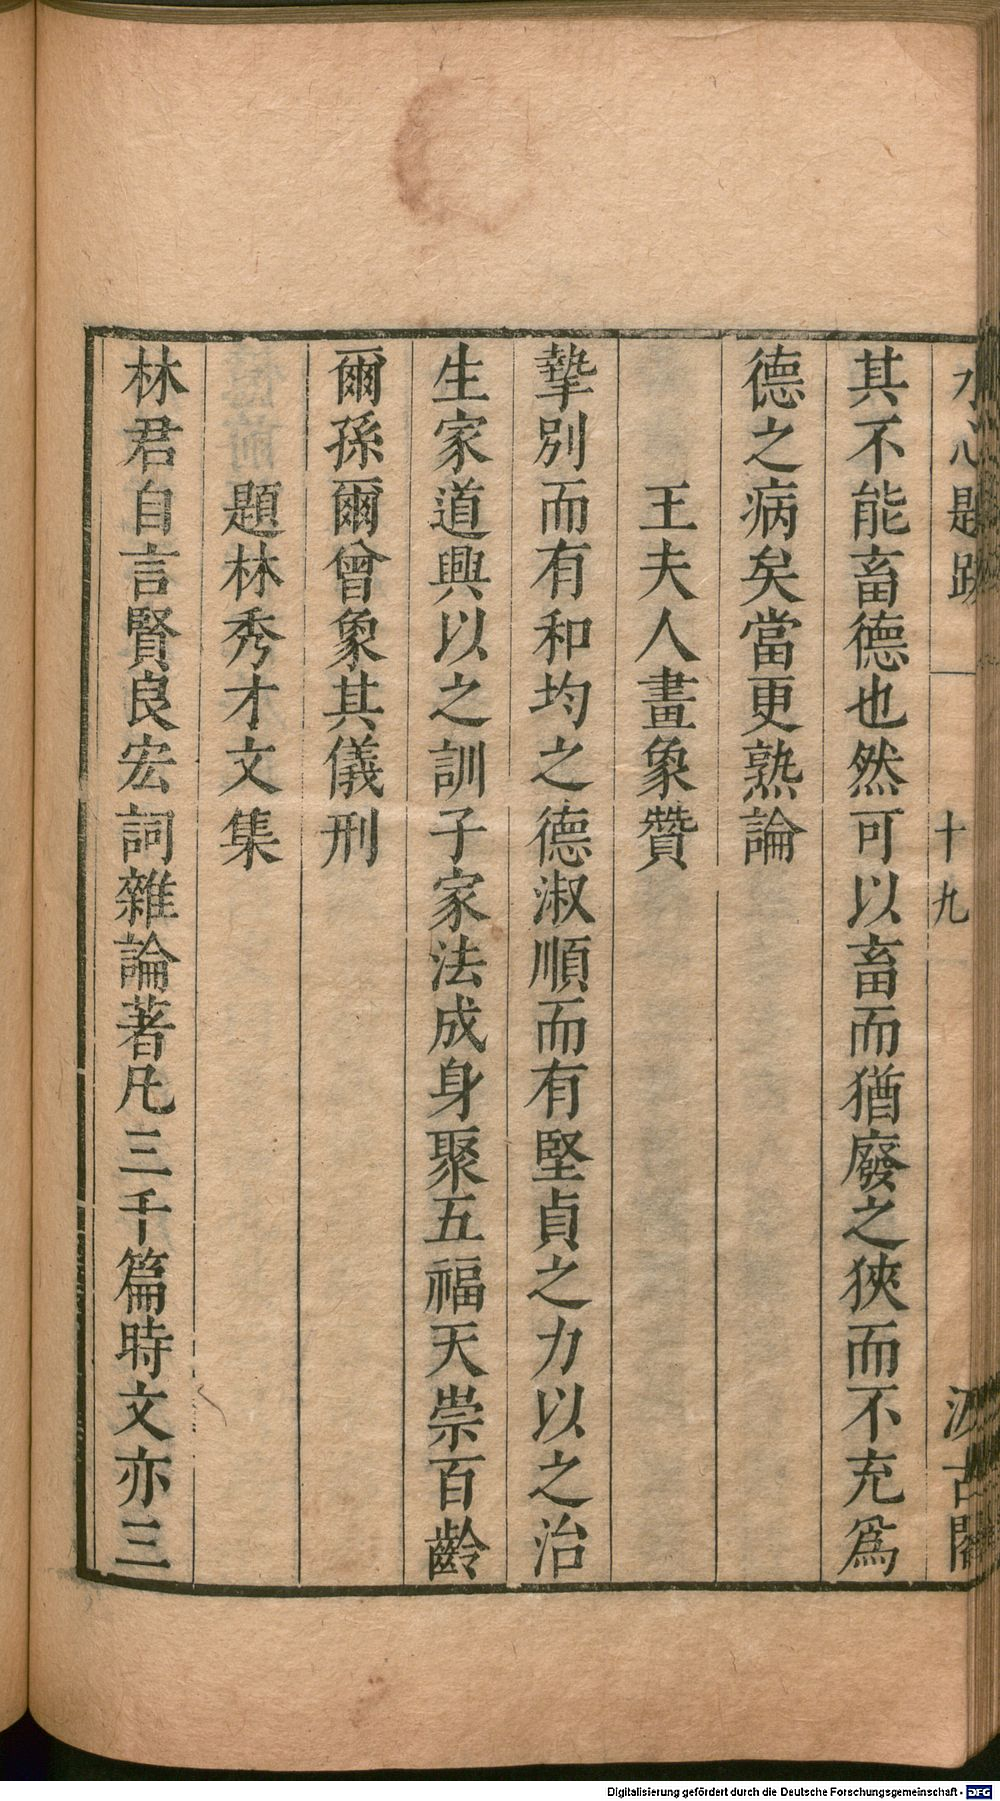 水心題跋 十九 汲古閣
其不能畜德也然可以畜而猶廢之狹而不充爲
德之病矣當更熟論
王夫人畫象贊
摯別而有和均之德淑順而有堅貞之力以之治
生家道興以之訓子家法成身聚五福天崇百齡
爾孫爾曾象其儀刑
題林秀才文集
林君自言賢良宏詞雜論著凡三千篇時文亦三
Digitalisierung gefördert durch die Deutsche Forschungsgemeinschaft - DFG